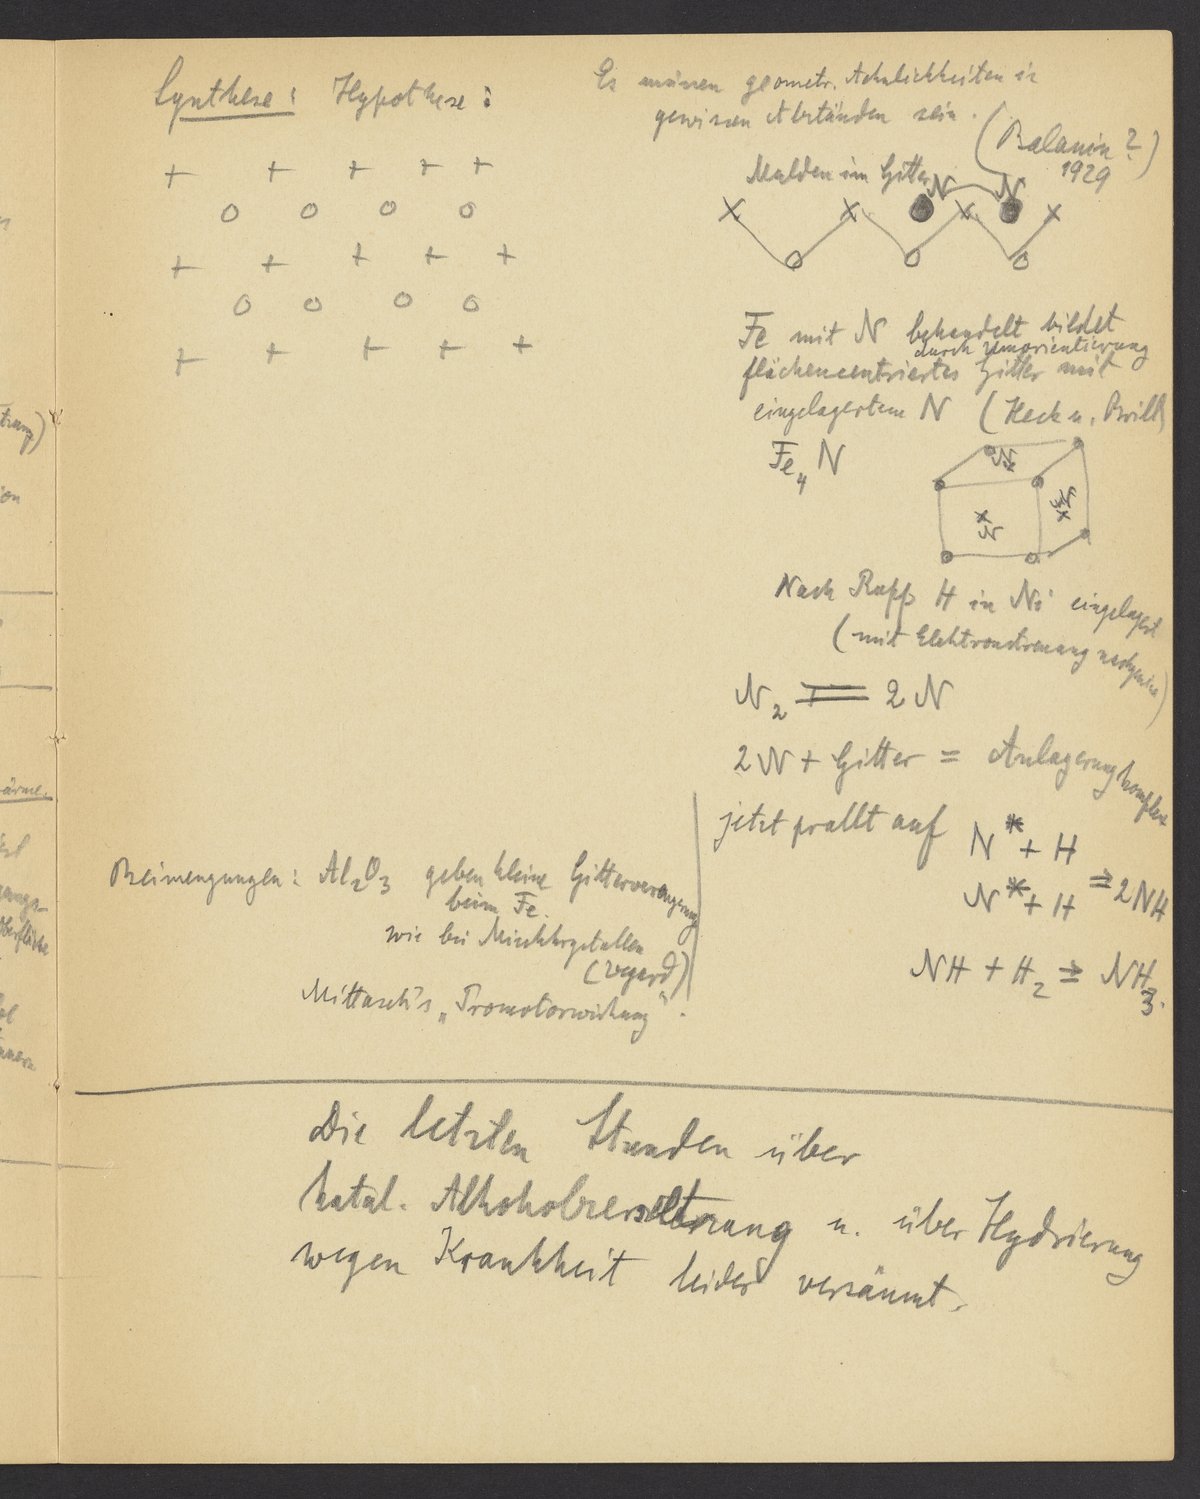 Synthese: Hypothese:
Es müssen geometr. Aehnlichkeiten in
gewissen Abständen sein.
(Balanin?
1929)
Mulden im Gitter
N N
Fe mit N behandelt bildet
durch Umorientierung
flächencentriertes Gitter mit
eingelagertem N (Heck u. Brill)
Fe4N
N
N
N
Nach Rupp H in Ni eingelagert
(mit Elektronstreuung
N2 = 2N
2N + Gitter = Anlagerungskomplex
jetzt prallt auf N* + H
N* + H ⇒ 2NH
NH + H2 ⇒ NH3.
Beimengungen: Al2O3 geben kleine Gitterverengerung
beim Fe.
wie bei Mischkrystallen
(Vegard)
Mittasch's „Promotorwirkung".
Die letzten Stunden über
katal. u. über Hydrierung
wegen Krankheit leider versäumt.
ion
ärme.